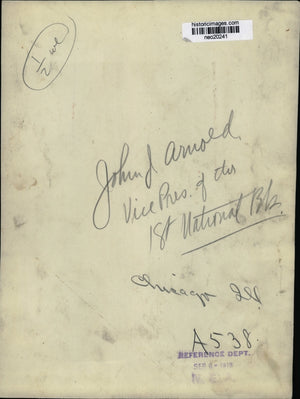 historicimages.com
neo20241
1/2
John J Arnold
Vice Pres. of the
1st National Bk.
Chicago Ill
A538
REFERENCE DEPT.
N. E. A.